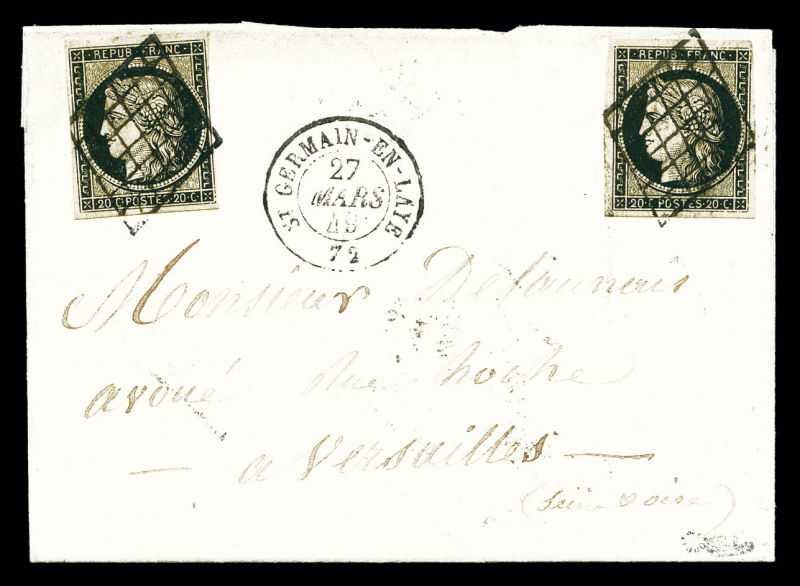 REPUB FRANC
20 C POSTES 20 C
REPUB FRANC
20 C POSTES 20 C
ST GERMAIN-EN-LAYE
27
MARS
49
72
Monsieur Delaunais
avoué Rue hoche
— a Versailles —
(Seine & oise)